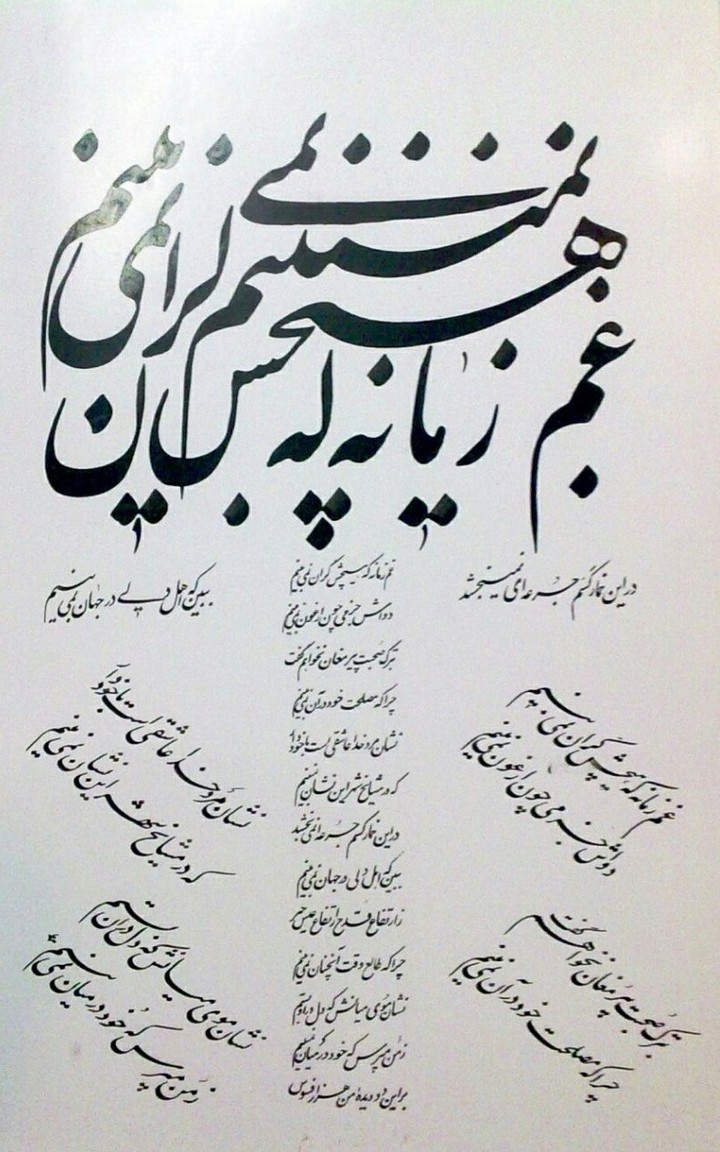 غم
در این خمار کسم جرعه ای نمی بخشد
ببین که اهل دلی در جهان نمی بینم
غم زمانه که هیچش کران نمی بینم
دواش جز می چون ارغوان نمی بینم
بترک صحبت پیر مغان نخواهم گفت
چرا که مصلحت خود در آن نمی بینم
نشان مرد خدا عاشقی است با خود آ
که در مشایخ شهر این نشان نمی بینم
در این خمار کسم جرعه ای نمی بخشد
ببین که اهل دلی در جهان نمی بینم
قدح ارتفاع عیش
چرا که طالع وقت آنچنان نمی بینم
نشان موی میانش که دل در او بستم
ز من مپرس که خود در میان نمی بینم
بر این دو دیده من هزار افسوس
غم زمانه که هیچش کران نمی بینم
دواش جز می چون ارغوان نمی بینم
بترک صحبت پیر مغان نخواهم گفت
چرا که مصلحت خود در آن نمی بینم
نشان مرد خدا عاشقی است با خود آ
که در مشایخ شهر این نشان نمی بینم
نشان موی میانش که دل در آن بستم
ز من مپرس که خود در میان نمی بینم